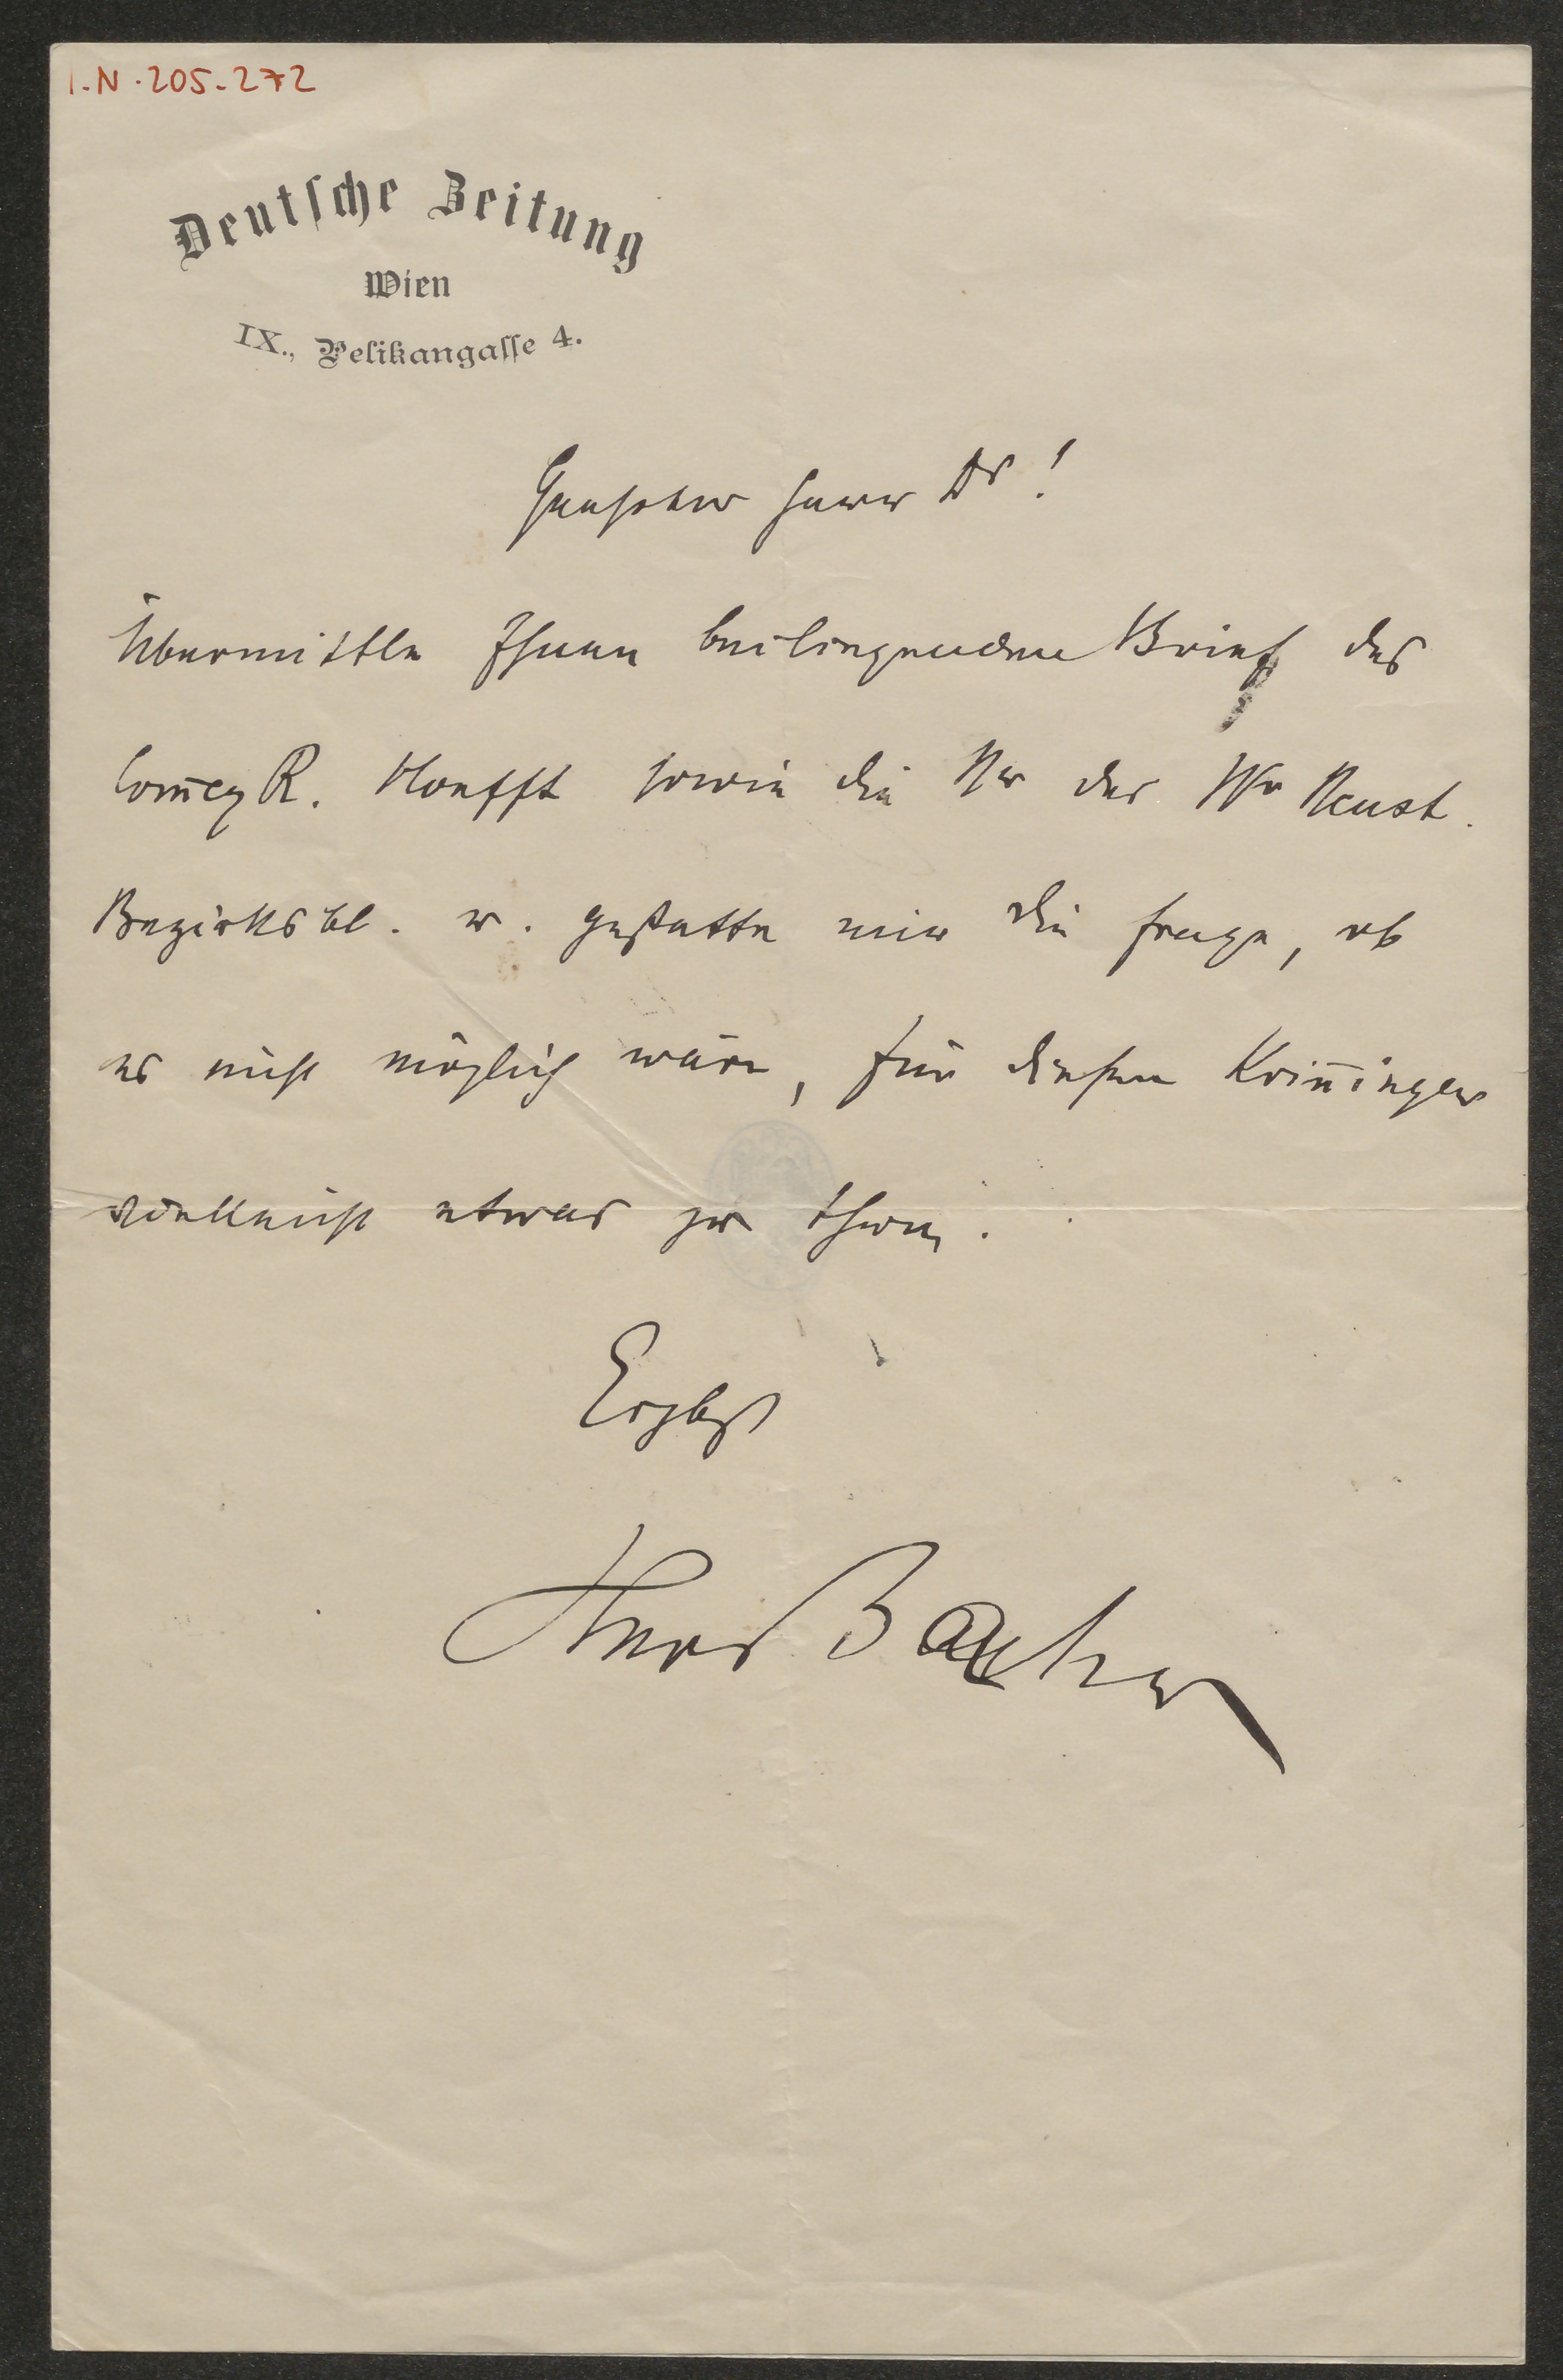 I.N. 205.272
Deutsche Zeitung
Wien
IX., Pelikangasse 4.
Geehrter Herr Dr!
Übermittle Ihnen beiliegenden Brief des
R. sowie die Nr der Wr Neust.
Bezirksbl. u. gestatte mir die Frage, ob
es nicht möglich wäre, für diesen Krin̄inger
vielleicht etwas zu thun.
Ergbst